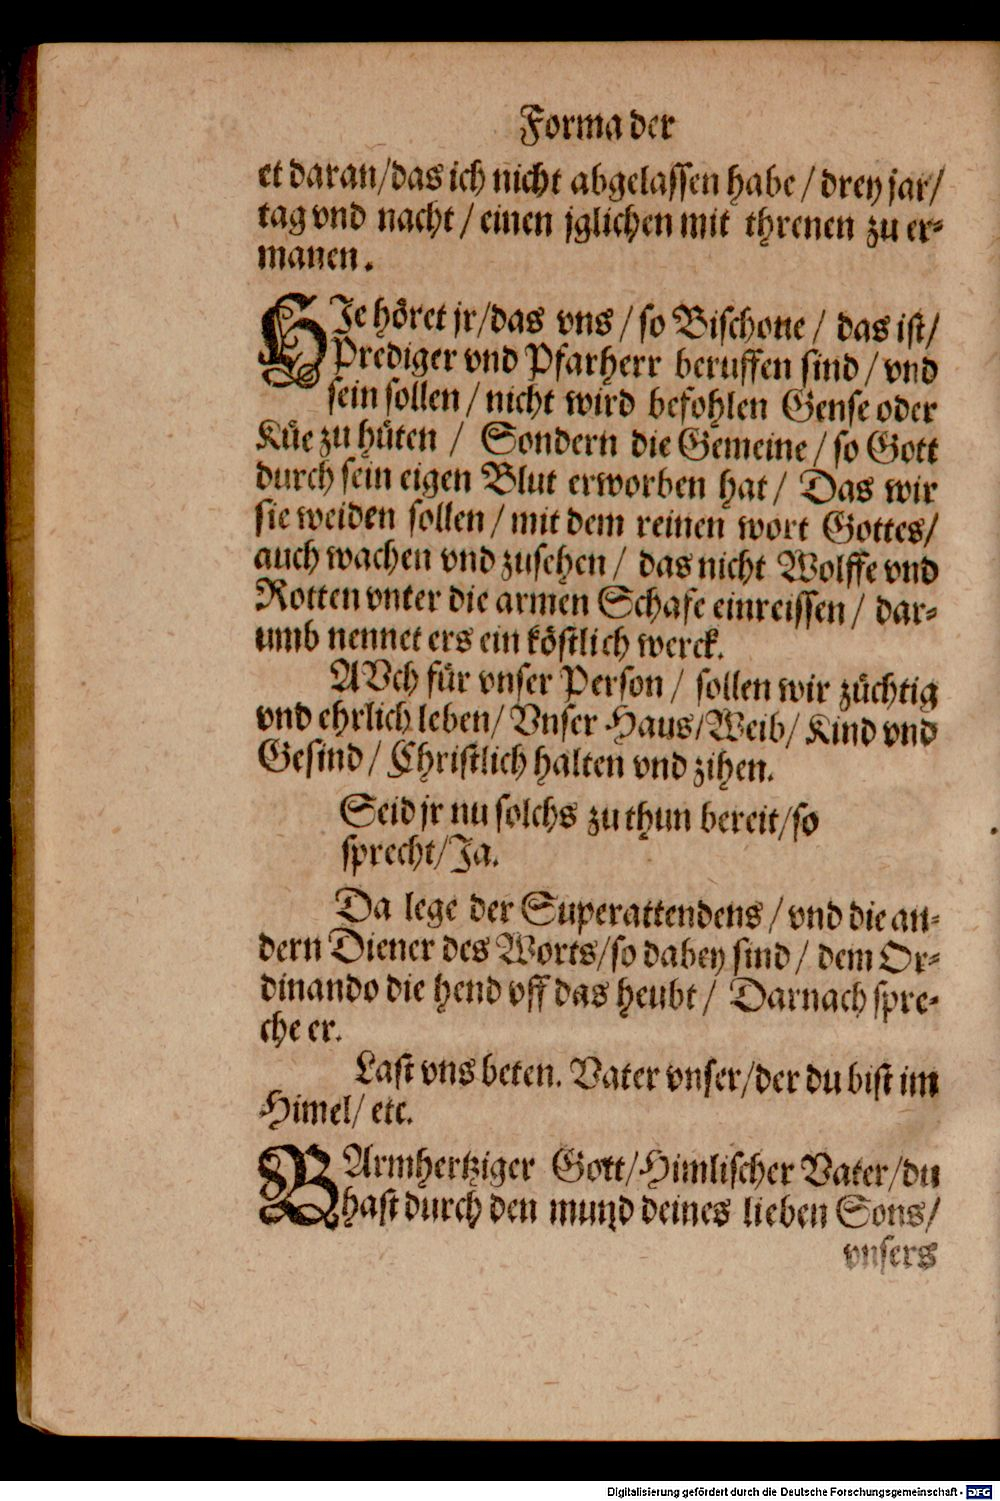 Forma der
et daran/das ich nicht abgelassen habe / drey jar/
tag vnd nacht / einen jglichen mit threnen zu er-
manen.
HJe höret jr/das vns / so Bischoue / das ist/
Prediger vnd Pfarherr beruffen sind / vnd
sein sollen / nicht wird befohlen Gense oder
Küe zu hüten / Sondern die Gemeine / so Gott
durch sein eigen Blut erworben hat / Das wir
sie weiden sollen / mit dem reinen wort Gottes/
auch wachen vnd zusehen / das nicht Wolffe vnd
Rotten vnter die armen Schafe einreissen / dar-
umb nennet ers ein köstlich werck.
AVch für vnser Person / sollen wir züchtig
vnd ehrlich leben/ Vnser Haus/Weib/ Kind vnd
Gesind / Christlich halten vnd zihen.
Seid jr nu solchs zu thun bereit/so
sprecht/Ja.
Da lege der Superattendens / vnd die an-
dern Diener des Worts/so dabey sind / dem Or-
dinando die hend vff das heubt / Darnach spre-
che er.
Last vns beten. Vater vnser/der du bist im
Himel/ etc.
BArmhertziger Gott/Himlischer Vater/du
hast durch den mund deines lieben Sons/
vnsers
Digitalisierung gefördert durch die Deutsche Forschungsgemeinschaft - DFG